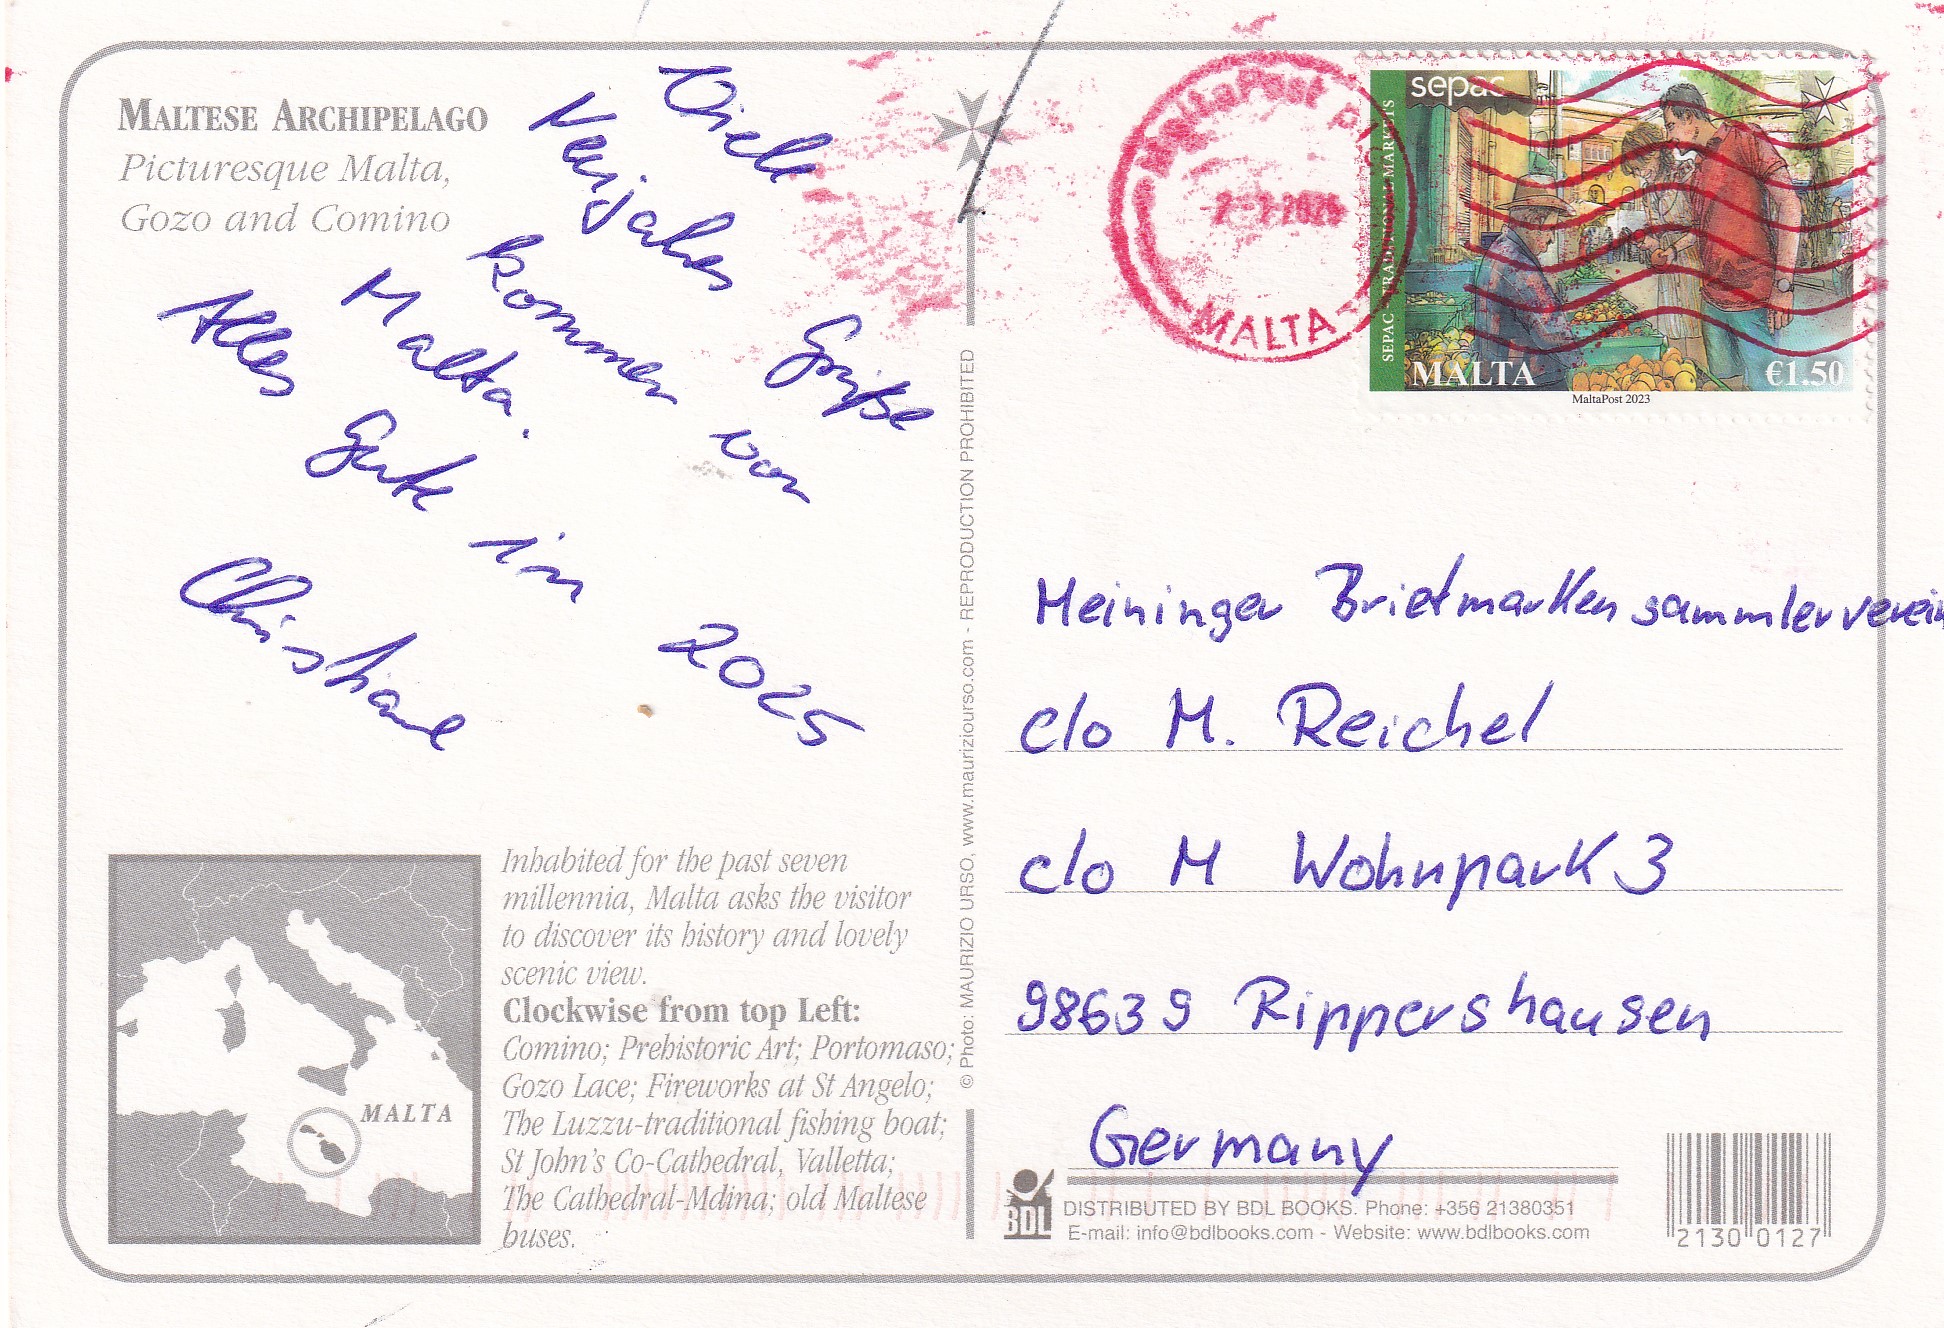 MALTESE ARCHIPELAGO
Picturesque Malta,
Gozo and Comino
Viele Grüße
Neujahrs
kommen von
Malta.
Alles Gute in 2025
Christiane
Inhabited for the past seven
millennia, Malta asks the visitor
to discover its history and lovely
scenic view.
Clockwise from top Left:
Comino; Prehistoric Art; Portomaso;
Gozo Lace; Fireworks at St Angelo;
The Luzzu-traditional fishing boat;
St John's Co-Cathedral, Valletta;
The Cathedral-Mdina; old Maltese
buses.
MALTA
© Photo: MAURIZIO URSO, www.mauriziourso.com - REPRODUCTION PROHIBITED
MaltaPost p
MALTA
sepac
SEPAC TRADITIONAL MARKETS
MALTA
€1.50
MaltaPost 2023
Meininger Briefmarkensammlerverein
c/o M. Reichel
c/o M Wohnpark 3
98639 Rippershausen
Germany
BDL
DISTRIBUTED BY BDL BOOKS. Phone: +356 21380351
E-mail: info@bdlbooks.com - Website: www.bdlbooks.com
2130 0127